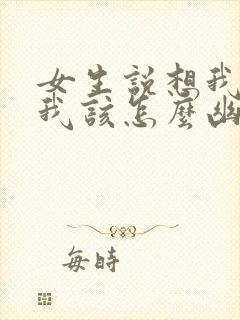 女生說想我
我該怎麼幽
每時